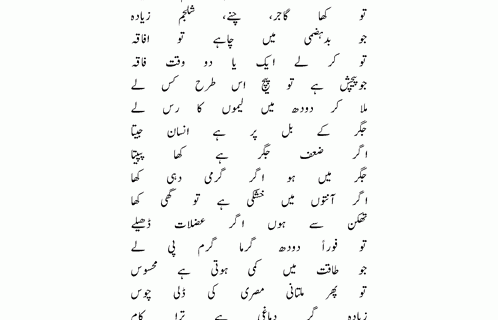 تو کھا گاجر، چنے، شلجم زیادہ
جو بدہضمی میں چاہے تو افاقہ
تو کر لے ایک یا دو وقت فاقہ
جو پیچش ہے تو پیچ اس طرح کس لے
ملا کر دودھ میں لیموں کا رس لے
جگر کے بل پر ہے انسان جیتا
اگر ضعف جگر ہے کھا پپیتا
جگر میں ہو اگر گرمی دہی کھا
اگر آنتوں میں خشکی ہے تو گھی کھا
تھکن سے ہوں اگر عضلات ڈھیلے
تو فوراً دودھ گرما گرم پی لے
جو طاقت میں کمی ہوتی ہے محسوس
تو پھر ملتانی مصری کی ڈلی چوس
زیادہ گر دماغی ہے ترا کام